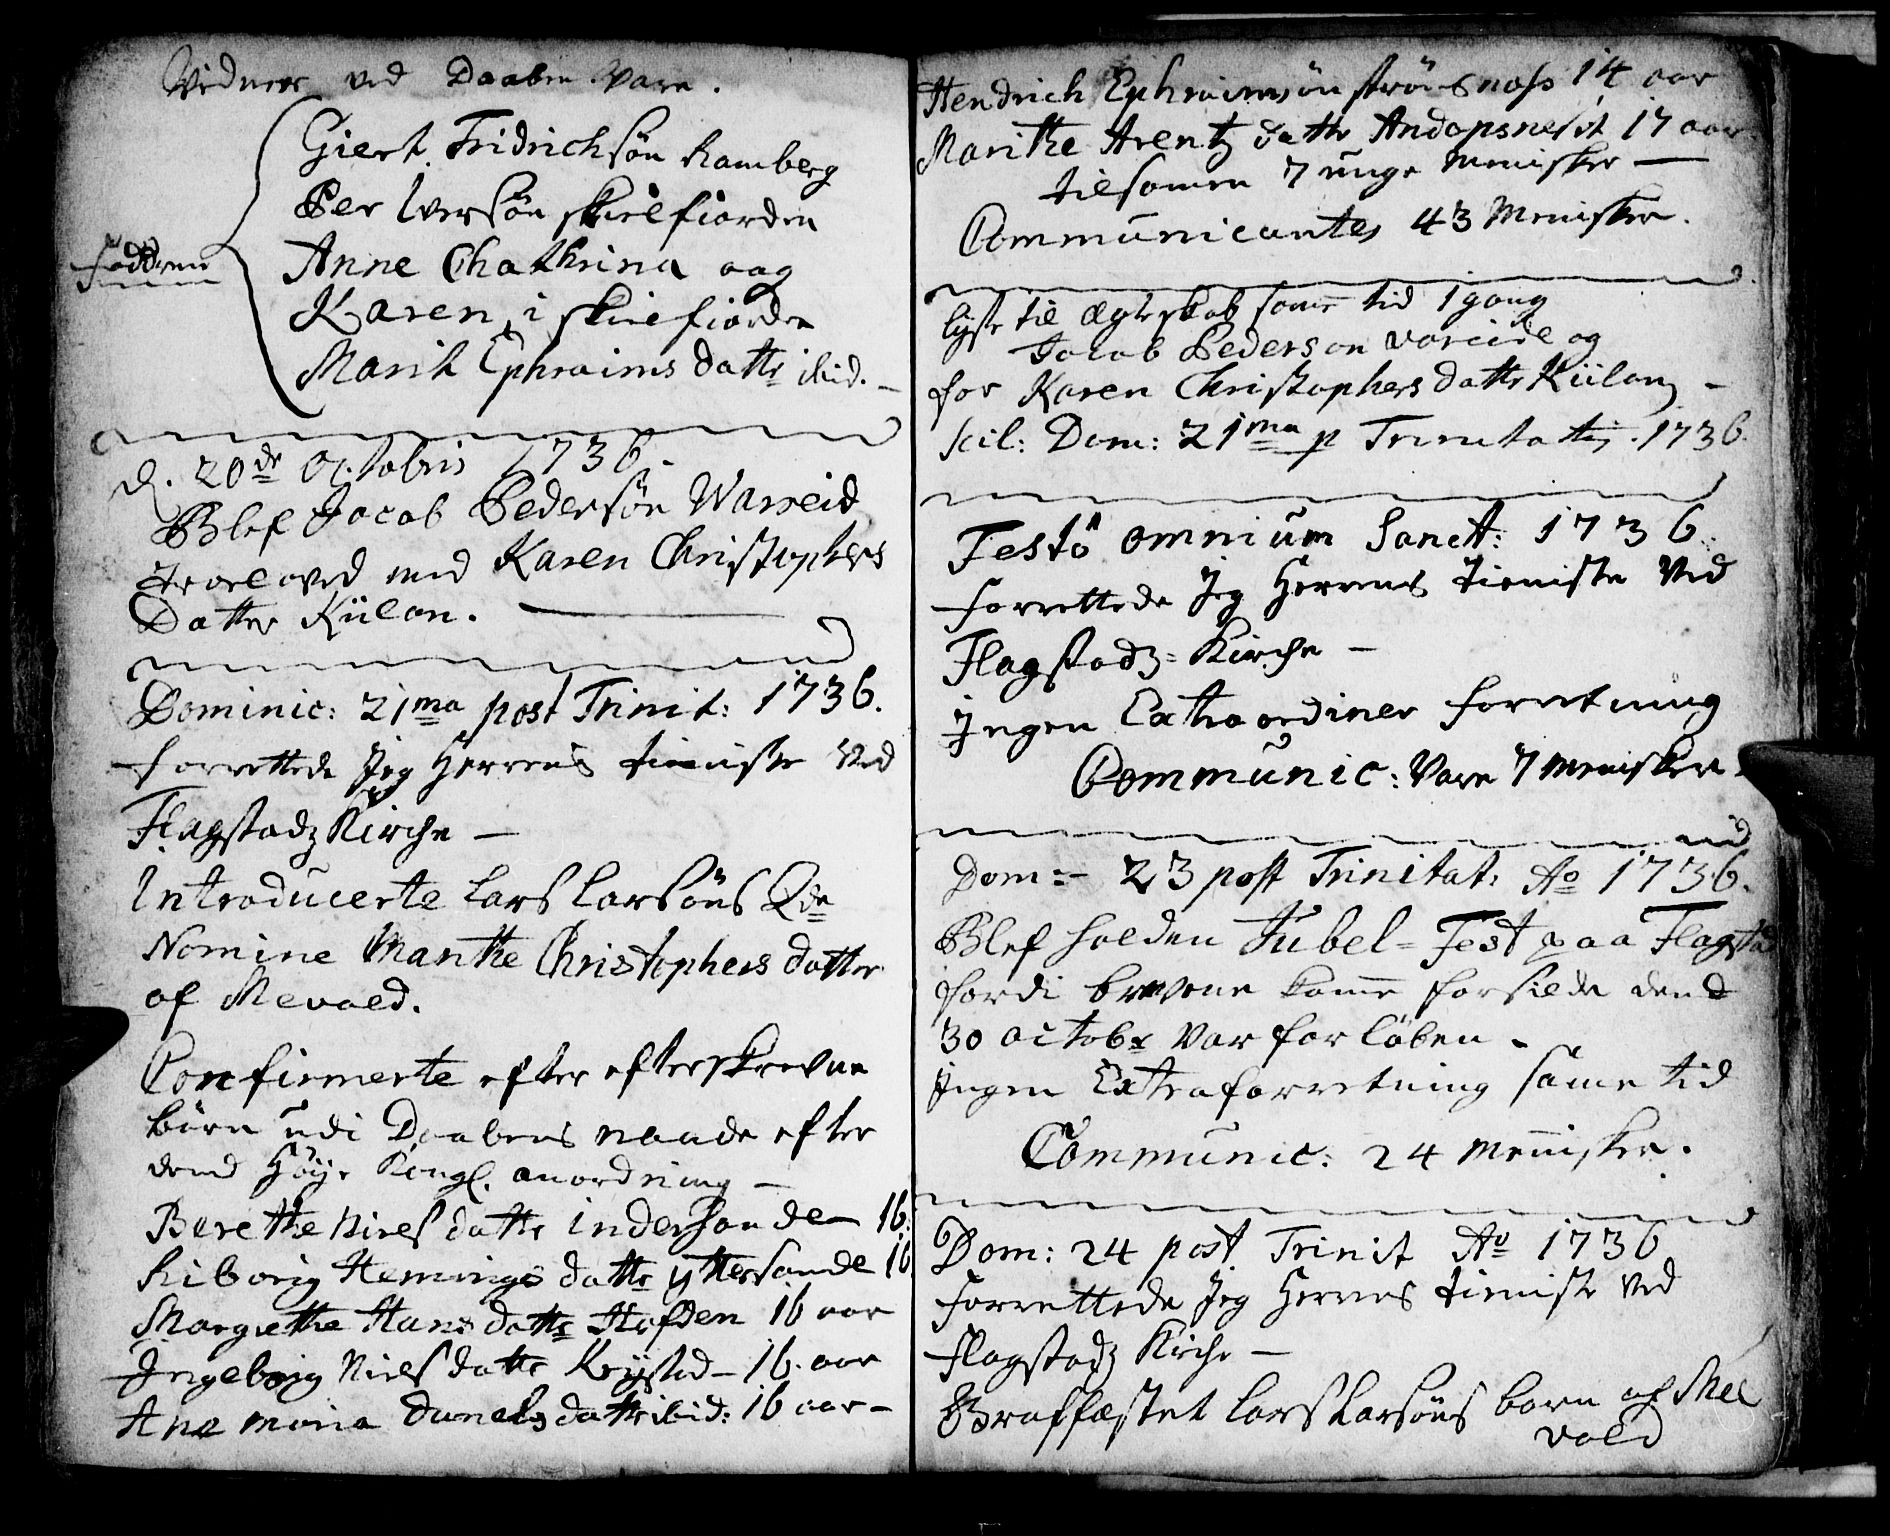 Vidner ved Daaben vare.
Giert Fridrichsön Ramberg
Per Iversön skielfiorden
Faddrene
Anne Chathrina aag
Karen i skielfiorden
Marit Ephraims datte ibid. -
d. 20de Octobris 1736.
Blef Jacob Pedersön Wareid
troelovd med Karen Christophers
Datter Kiilan.
Dominic: 21ma post Trinit: 1736.
forrettede Jeg Herrens tieniste ved
Flagstadz Kirche -
Introducerte Lars Larsöns Qde
Nomine Marithe Christophers datter
af Mevold.
Confirmerte efter efterskrevne
börn udi Daabens naade efter
dend Höye Kongl. anordning -
Berethe Niels datte indersande - 16.
Kiborig Hemings datte yttersande 16
Margrethe Hans datte Hofden 16 aar
Ingeborig Niels datte Krystad - 16. aar
Ane Maria Danels datte ibid: 16 aar -
Hendrich Ephraimsön strömsnæss 14 aar
Marithe Arentz datte Andopsnesit 17 aar
tilsamen 7 unge Menisker -
Communicantes 43 Menisker.
lyste til ægteskab same tid 1 gang
Jacob Pederson vareide og
for Karen Christophers datte Kiilan -
scil: Dom: 21ma p Trinitatis. 1736.
Festo omnium Sanct: 1736.
forrettede Jeg Herrens tieniste ved
Flagstadz Kirche -
Ingen Extraordiner forretning
Communic: vare 7 Menisker.
Dom: 23 post Trinitat: Ao 1736.
Blef holden Jubel-Fest paa Flagstad
fordi brevene kome forsilde dend
30 octobr var forlöben.
Ingen Extraforretning same tid
Communic: 24 Menisker.
Dom: 24 post Trinit Ao 1736
forrettede Jeg Herrens tieniste ved
Flagstadz Kirche -
Graffæstet Lars Larsöns barn af Me
vold